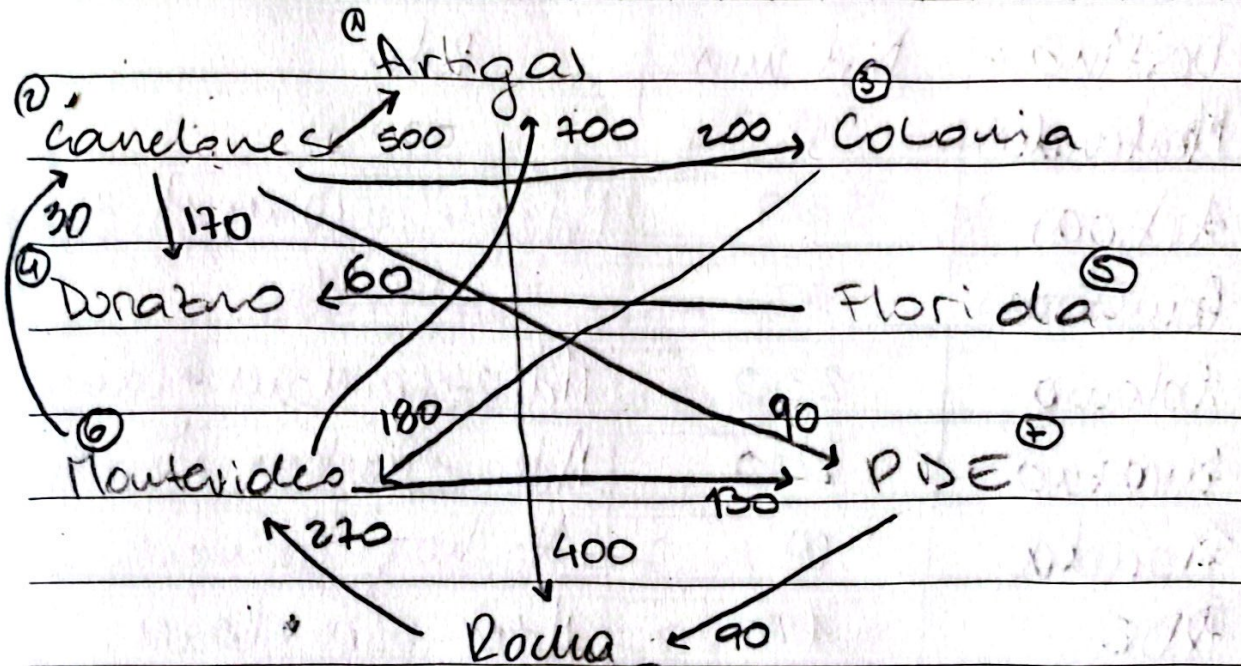 ① Artigas
② Canelones 500 700 200 ③ Colonia
30 170
④ Durazno 60 Florida ⑤
⑥ 180 90 ⑦
Montevideo 130 PDE
270 400
Rocha 90